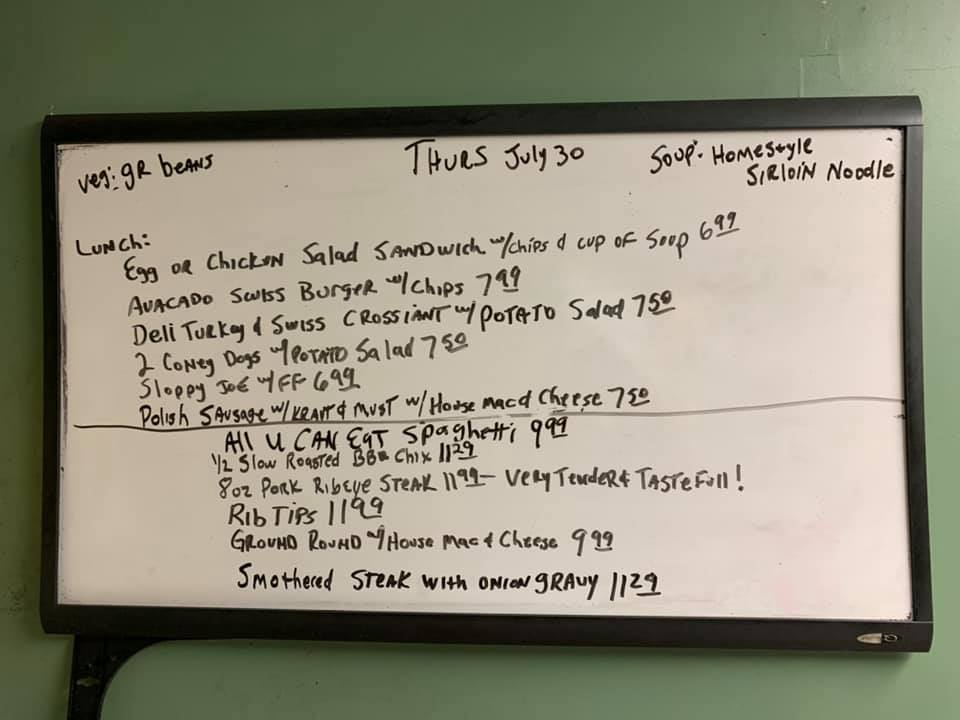 veg: gR beANS
THURS July 30
Soup: Homestyle
SIRloiN Noodle
LUNCH:
Egg OR CHICKEN Salad SANDWICH w/chips & cup OF Soup 6 99
AVACADO SWISS BURGER w/CHIPS 7 99
Deli TURKey & SWISS CROSSIANT w/ POTATO Salad 7 50
2 CONEY DOGS w/POTATO Salad 7 50
Sloppy JOE w/FF 6 99
Polish SAUSAGE w/KRAUT & MUST w/ House mac & Cheese 7 50
All U CAN EAT Spaghetti 9 99
1/2 Slow Roasted BBQ Chix 11 29
8oz PORK RIBEYE STEAK 11 99 - VERY TeNdeR & TASTEFull!
RIb TIPS 11 99
GROUND ROUND w/House Mac & Cheese 9 99
Smothered STEAK with ONION gRAVY 11 29